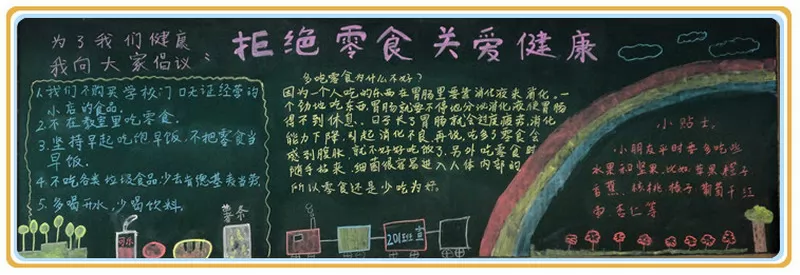 拒绝零食 关爱健康
为了我们健康
我向大家倡议
1.我们不购买学校门口无证经营的
小店的食品。
2.不在教室里吃零食。
3.坚持早起吃饱早饭,不把零食当
早饭。
4.不吃各类垃圾食品,少去肯德基麦当劳
5.多喝开水,少喝饮料。
多吃零食为什么不好?
因为一个人吃的东西在胃肠里要靠消化液来消化。一
个劲地吃东西,胃肠就要不停地分泌消化液,使胃肠
得不到休息、日子长了胃肠就会过度疲劳,消化
能力下降,引起消化不良,再说,吃多了零食会
感到腹胀,就不好好吃饭了,另外吃零食时
随手拈来,细菌很容易进入人体内部的
所以零食还是少吃为好。
小贴士:
小朋友平时要多吃些
水果和坚果,比如:苹果 橙子
香蕉、核桃 榛子 葡萄干 红
枣、杏仁等
薯条
可乐
201班宣